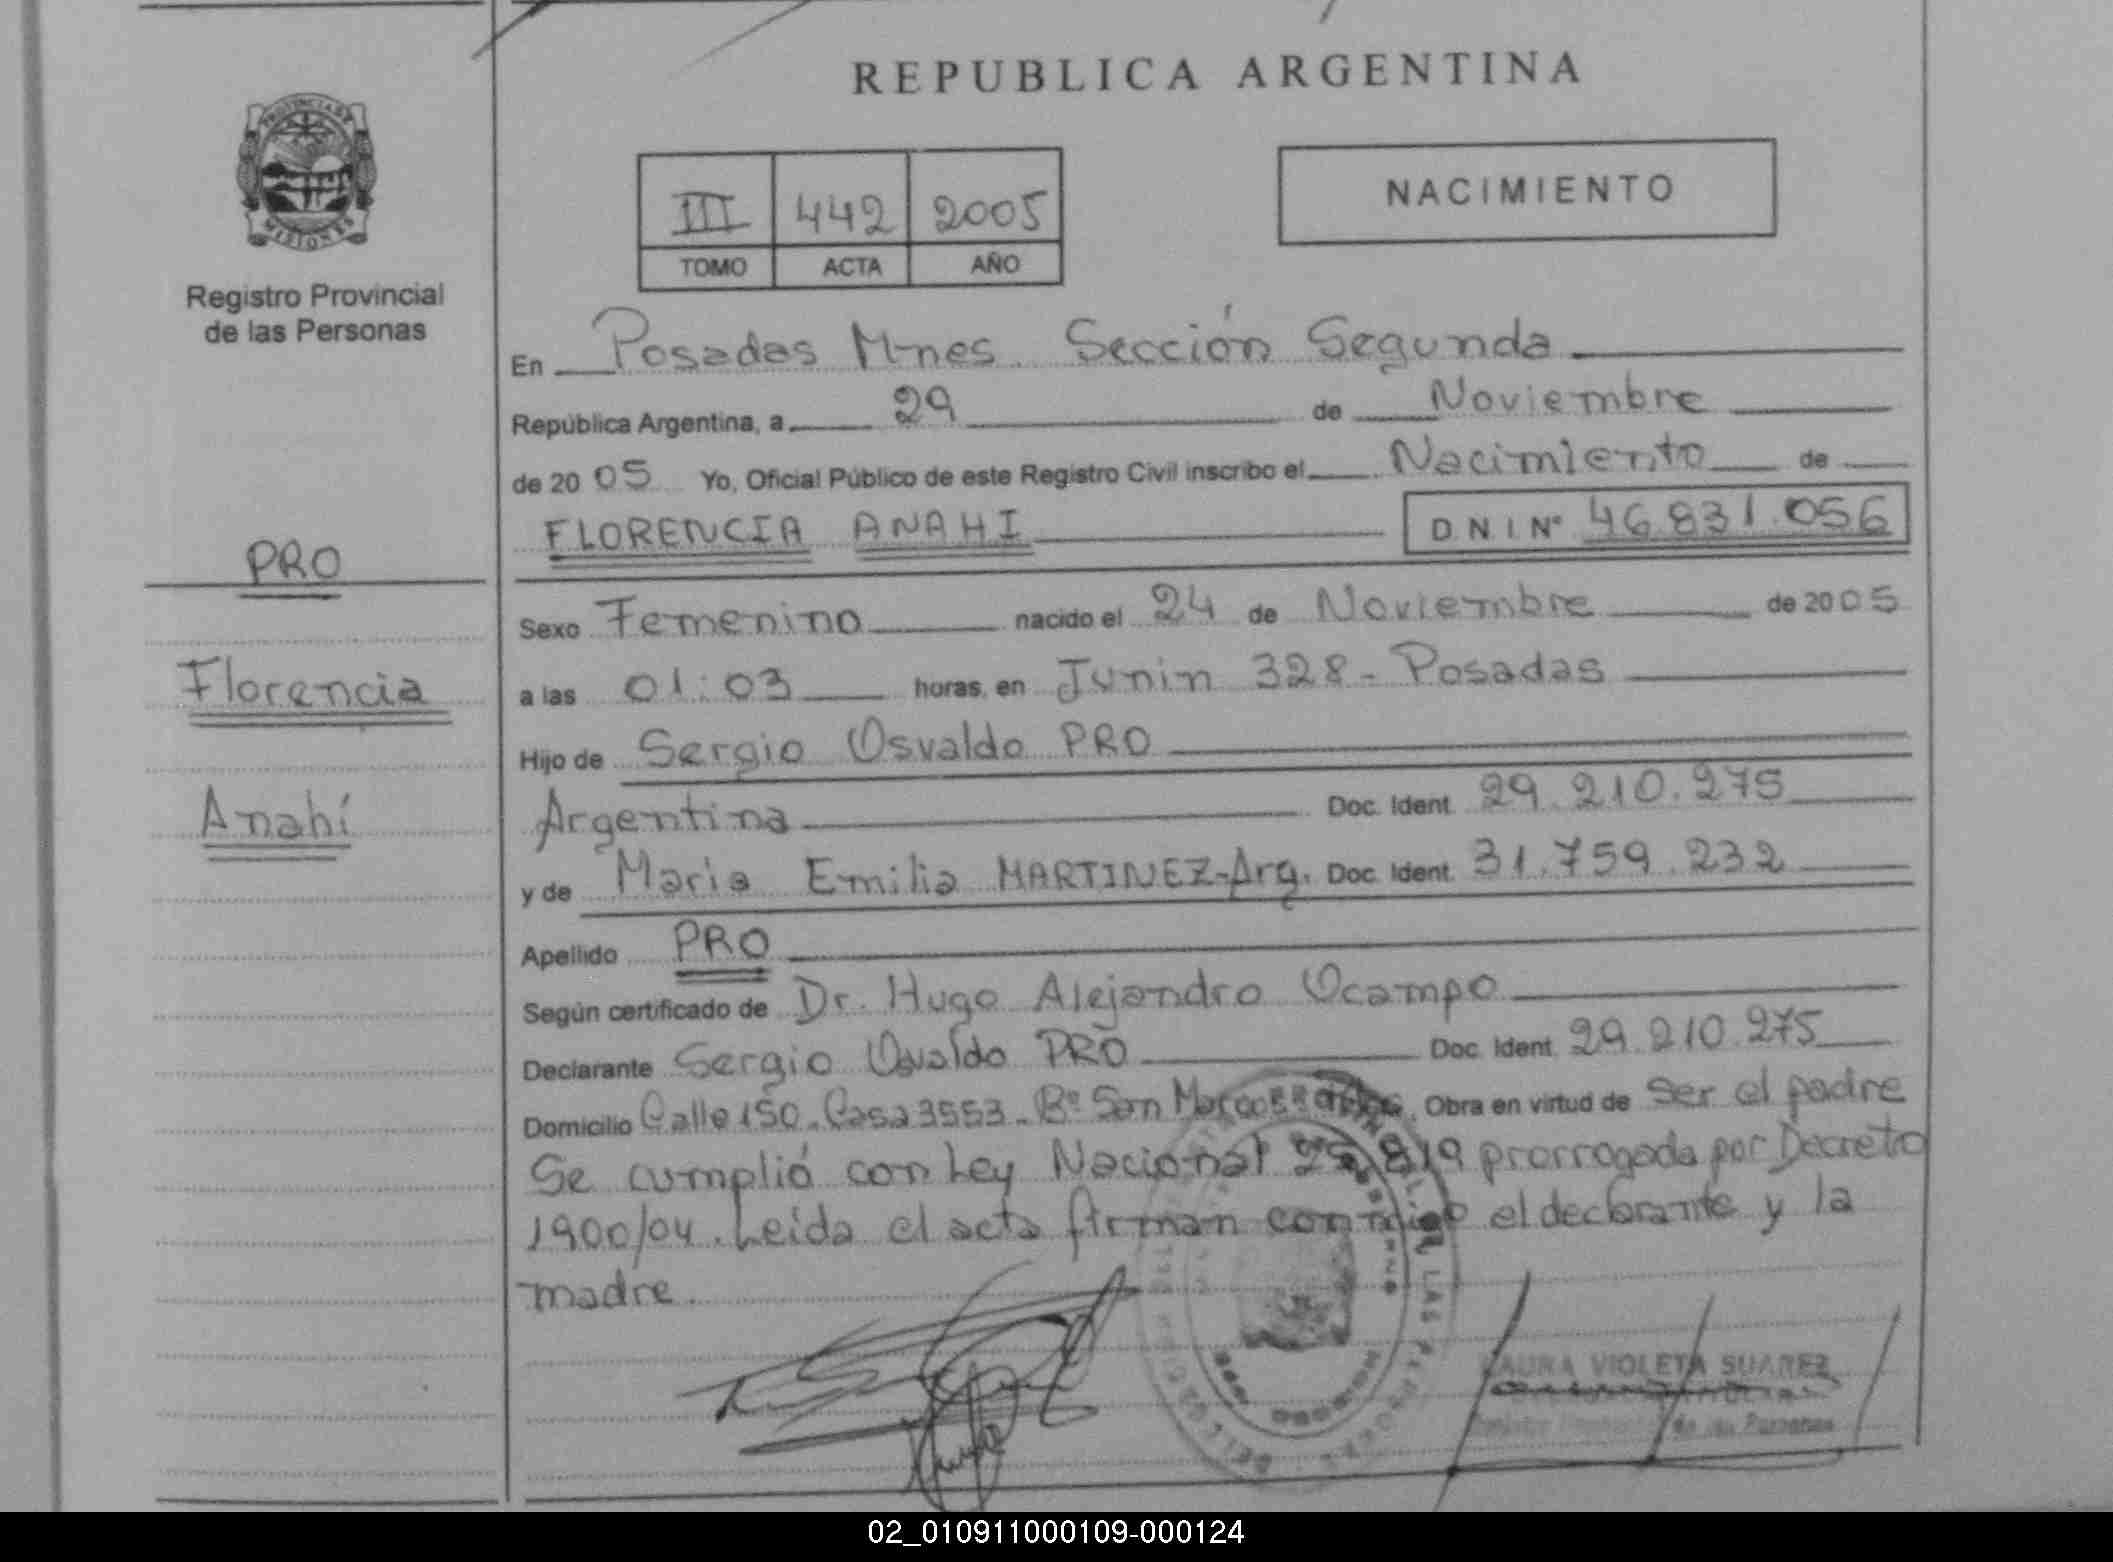 REPUBLICA ARGENTINA
PROVINCIA DE
MISIONES
Registro Provincial
de las Personas
NACIMIENTO
III 442 2005
TOMO ACTA AÑO
En Posadas Mnes. Sección Segunda
República Argentina, a 29 de Noviembre
de 20 05 Yo, Oficial Público de este Registro Civil inscribo el Nacimiento de
FLORENCIA ANAHI D N I Nº 46.831.056
PRO
Florencia
Anahí
Sexo Femenino nacido el 24 de Noviembre de 20 05
a las 01:03 horas, en Junin 328 - Posadas
Hijo de Sergio Osvaldo PRO
Argentina Doc. Ident. 29.210.275
y de Maria Emilia MARTINEZ-Arg. Doc. Ident. 31.759.232
Apellido PRO
Según certificado de Dr. Hugo Alejandro Ocampo
Declarante Sergio Osvaldo PRO Doc. Ident. 29.210.275
Domicilio Calle 150. Casa 3553 - Bº San Marcos, Obra en virtud de ser el padre
Se cumplió con Ley Nacional 25.819 prorrogada por Decreto
1900/04. Leida el acta firman conmigo el declarante y la
madre.
LAURA VIOLETA SUAREZ
de las Personas
02_010911000109-000124